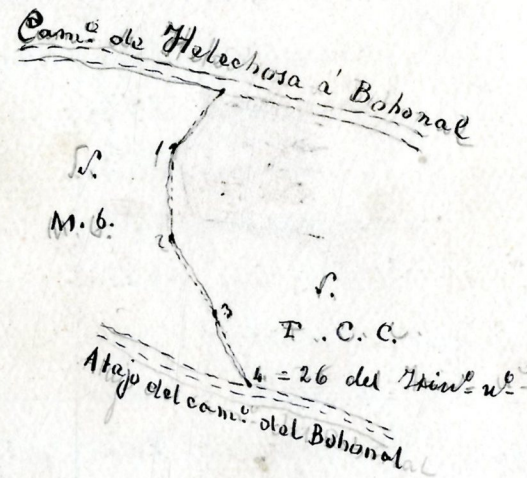 Cam.º de Helechosa á Bohonal
1
M. b.
2
3
F. C. C.
4 = 26 del Itin.º n.º
Atajo del cam.º del Bohonal